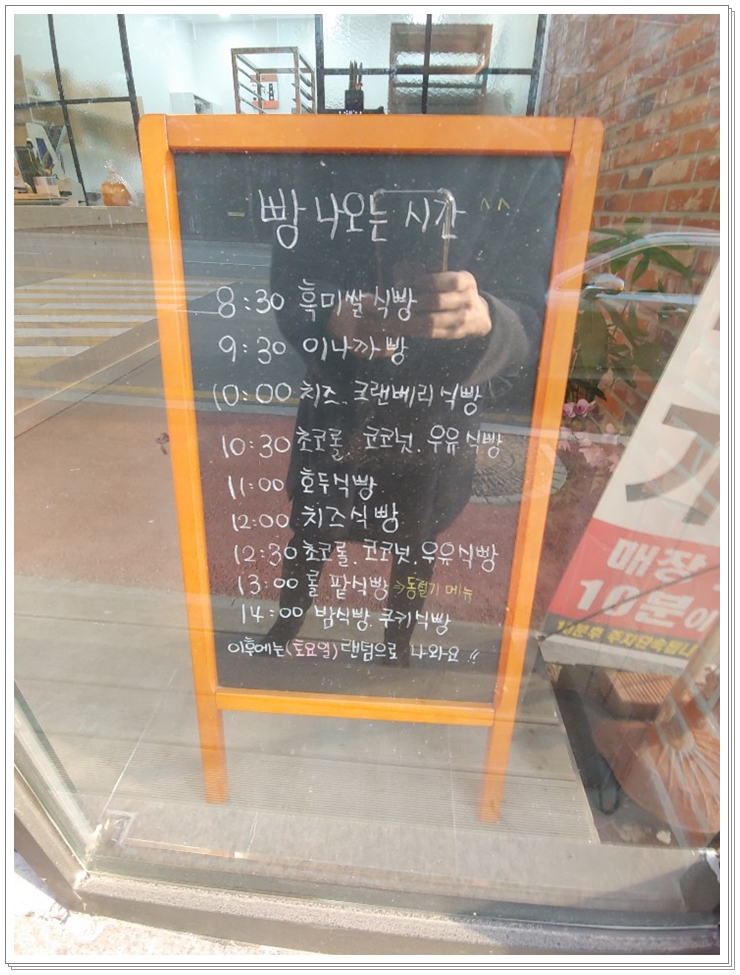 - 빵 나오는 시간 ^^
8:30 흑미쌀식빵
9:30 이나까빵
10:00 치즈. 크랜베리식빵
10:30 초코롤. 코코넛. 우유식빵
11:00 호두식빵
12:00 치즈식빵
12:30 초코롤. 코코넛. 우유식빵
13:00 롤 팥식빵 → 동절기 메뉴
14:00 밤식빵. 쿠키식빵
이후에는 (토요일) 랜덤으로 나와요 !!
매장
10분이
10분후 주차단속됩니